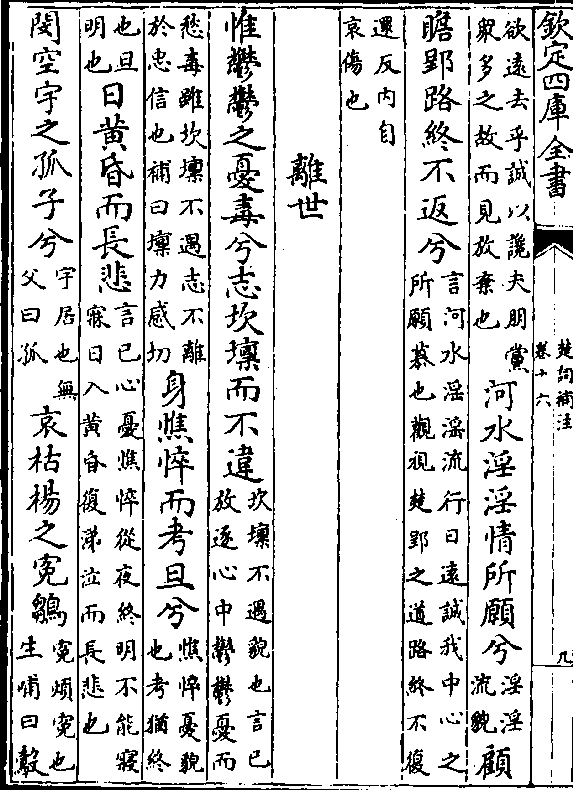 欽定四庫全書
楚詞補注
卷十六
九
欲遠去乎誠以讒夫朋黨
衆多之故而見放棄也
河水淫淫情所願兮
淫淫
流貌
顧
瞻郢路終不返兮
言河水淫淫流行日遠誠我中心之
所願慕也觀視楚郢之道路終不復
還反内自
哀傷也
離世
惟鬱鬱之憂毒兮志坎壈而不違
坎壈不遇貌也言已
放逐心中鬱鬱憂而
愁毒雖坎壈不遇志不離
於忠信也補曰壈力感切
身憔悴而考旦兮
憔悴憂貌
也考猶終
也旦
明也
日黄昏而長悲
言已心憂憔悴從夜終明不能寢
寐日入黄昏復涕泣而長悲也
閔空宇之孤子兮
宇居也無
父曰孤
哀枯楊之寃鶵
寃煩寃也
生哺曰鷇